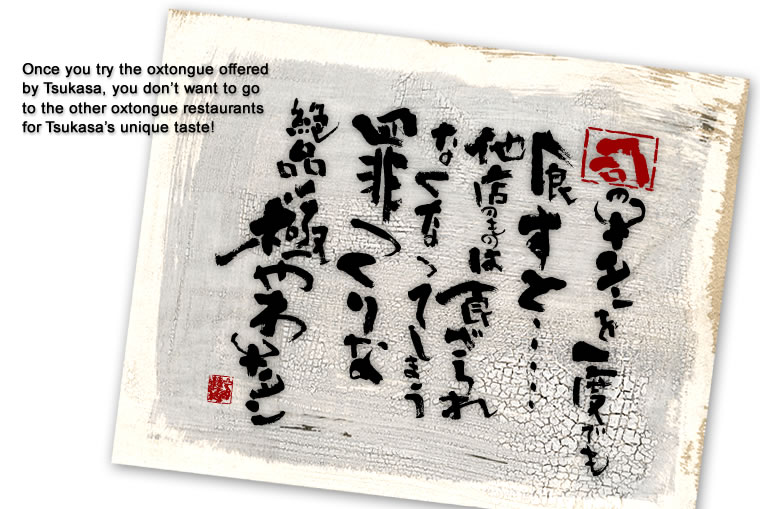 Once you try the oxtongue offered
by Tsukasa, you don't want to go
to the other oxtongue restaurants
for Tsukasa's unique taste!
司のタンを一度でも
食すと……
他店のものは食べられ
なくなってしまう
罪つくりな
絶品極やわタン